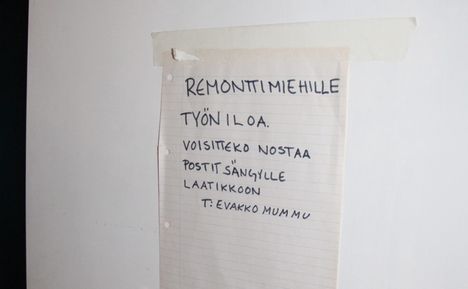 REMONTTIMIEHILLE
TYÖN ILOA.
VOISITTEKO NOSTAA
POSTIT SÄNGYLLE
LAATIKKOON
T: EVAKKO MUMMU